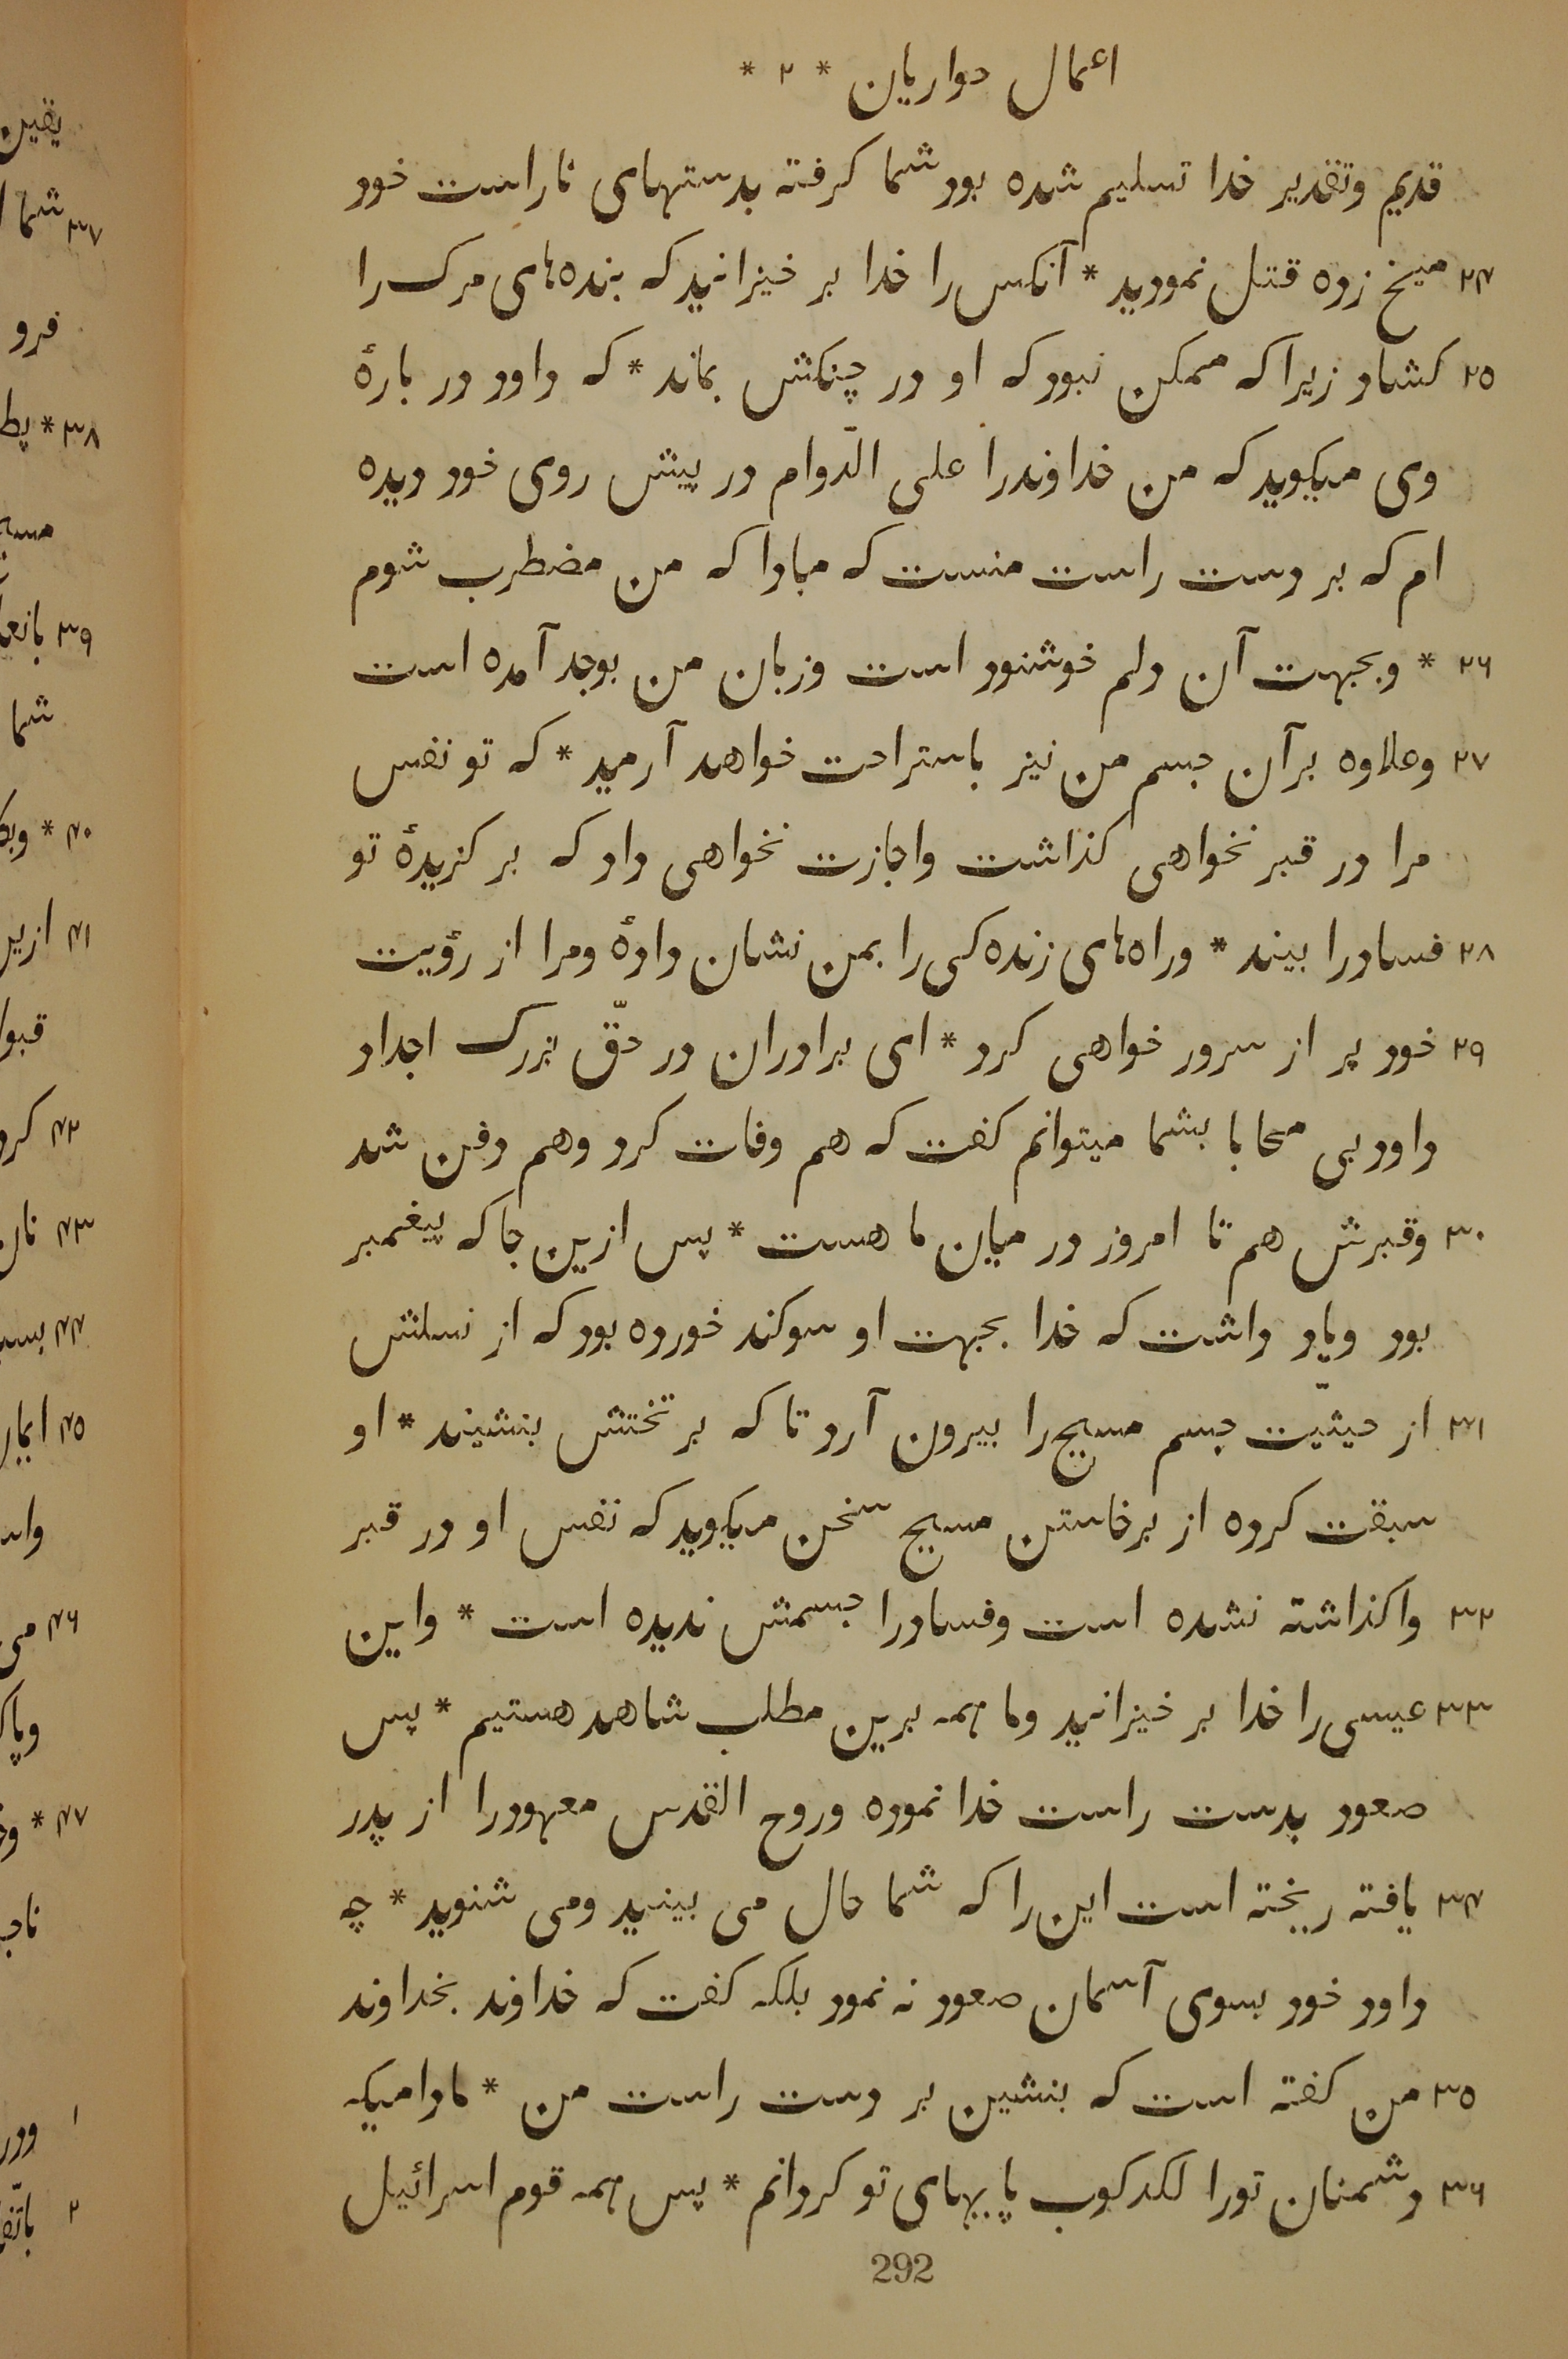 اعمال حواریان * ۲ *
قدیم وتقدیر خدا تسلیم شده بود شما کرفته بدستهای ناراست خود
۲۴ میخ زده قتل نمودید * آنکس را خدا بر خیزانید که بنده‌های مرک را
۲۵ کشاد زیرا که ممکن نبود که او در چنکش بماند * که داود در بارهٔ
وی میکوید که من خداوندرا علی الدّوام در پیش روی خود دیده
ام که بر دست راست منست که مبادا که من مضطرب شوم
۲۶ * وبجهت آن دلم خوشنود است وزبان من بوجد آمده است
۲۷ وعلاوه برآن جسم من نیز باستراحت خواهد آرمید * که تو نفس
مرا در قبر نخواهی کذاشت واجازت نخواهی داد که بر کزیدهٔ تو
۲۸ فسادرا بیند * وراه‌های زنده‌کی را بمن نشان دادهٔ ومرا از رؤیت
۲۹ خود پر از سرور خواهی کرد * ای برادران در حقّ بزرک اجداد
داود بی محابا بشما میتوانم کفت که هم وفات کرد وهم دفن شد
۳۰ وقبرش هم تا امروز در میان ما هست * پس ازین جا که پیغمبر
بود ویاد داشت که خدا بجهت او سوکند خورده بود که از نسلش
۳۱ از حیثیّت جسم مسیح را بیرون آرد تا که بر تختش بنشیند * او
سبقت کرده از برخاستن مسیح سخن میکوید که نفس او در قبر
۳۲ واکذاشته نشده است وفسادرا جسمش ندیده است * واین
۳۳ عیسی را خدا بر خیزانید وما همه برین مطلب شاهد هستیم * پس
صعود بدست راست خدا نموده وروح القدس معهودرا از پدر
۳۴ یافته ریخته است این را که شما حال می بینید ومی شنوید * چه
داود خود بسوی آسمان صعود نه نمود بلکه کفت که خداوند بخداوند
۳۵ من کفته است که بنشین بر دست راست من * مادامیکه
۳۶ دشمنان تورا لکدکوب پایهای تو کردانم * پس همه قوم اسرائیل
292
یقین
۳۷ شما
فرو
۳۸ * پط
۳۹
شما
۴۰ *
۴۱
۴۲
۴۳
۴۴
۴۵
۴۶ می
۴۷ *
۱
۲